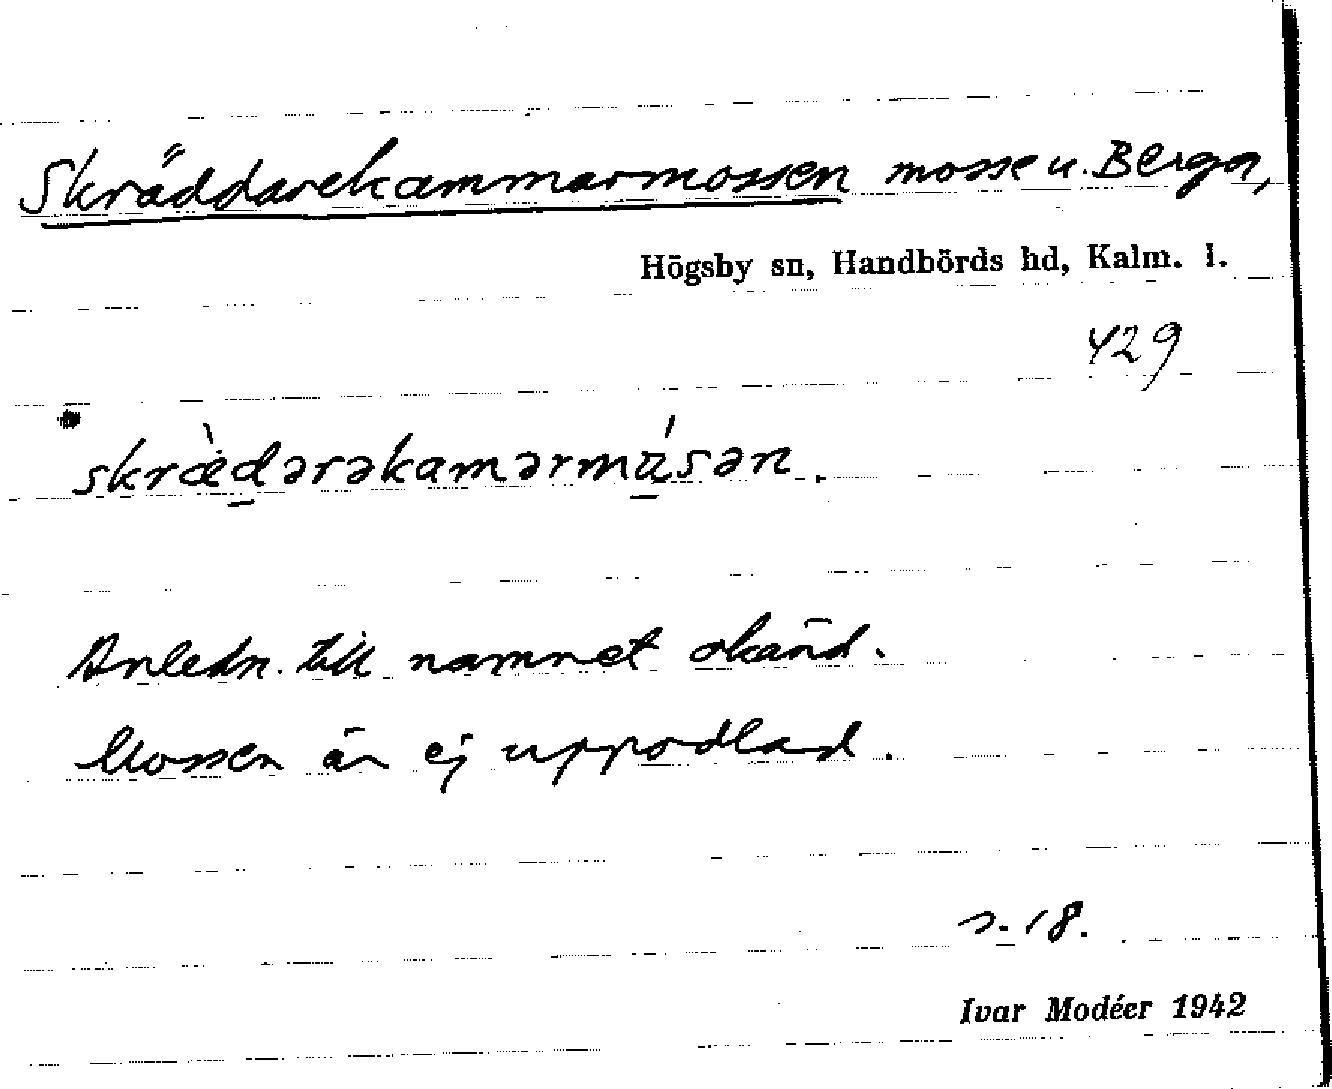 Skräddarekammarmossen mosse u. Berga,
Högsby sn, Handbörds hd, Kalm. l.
429
skræ̀d̲ərəkamərmú̲sən.
Anledn. till namnet okänd.
Mossen är ej uppodlad.
s. 18.
Ivar Modéer 1942